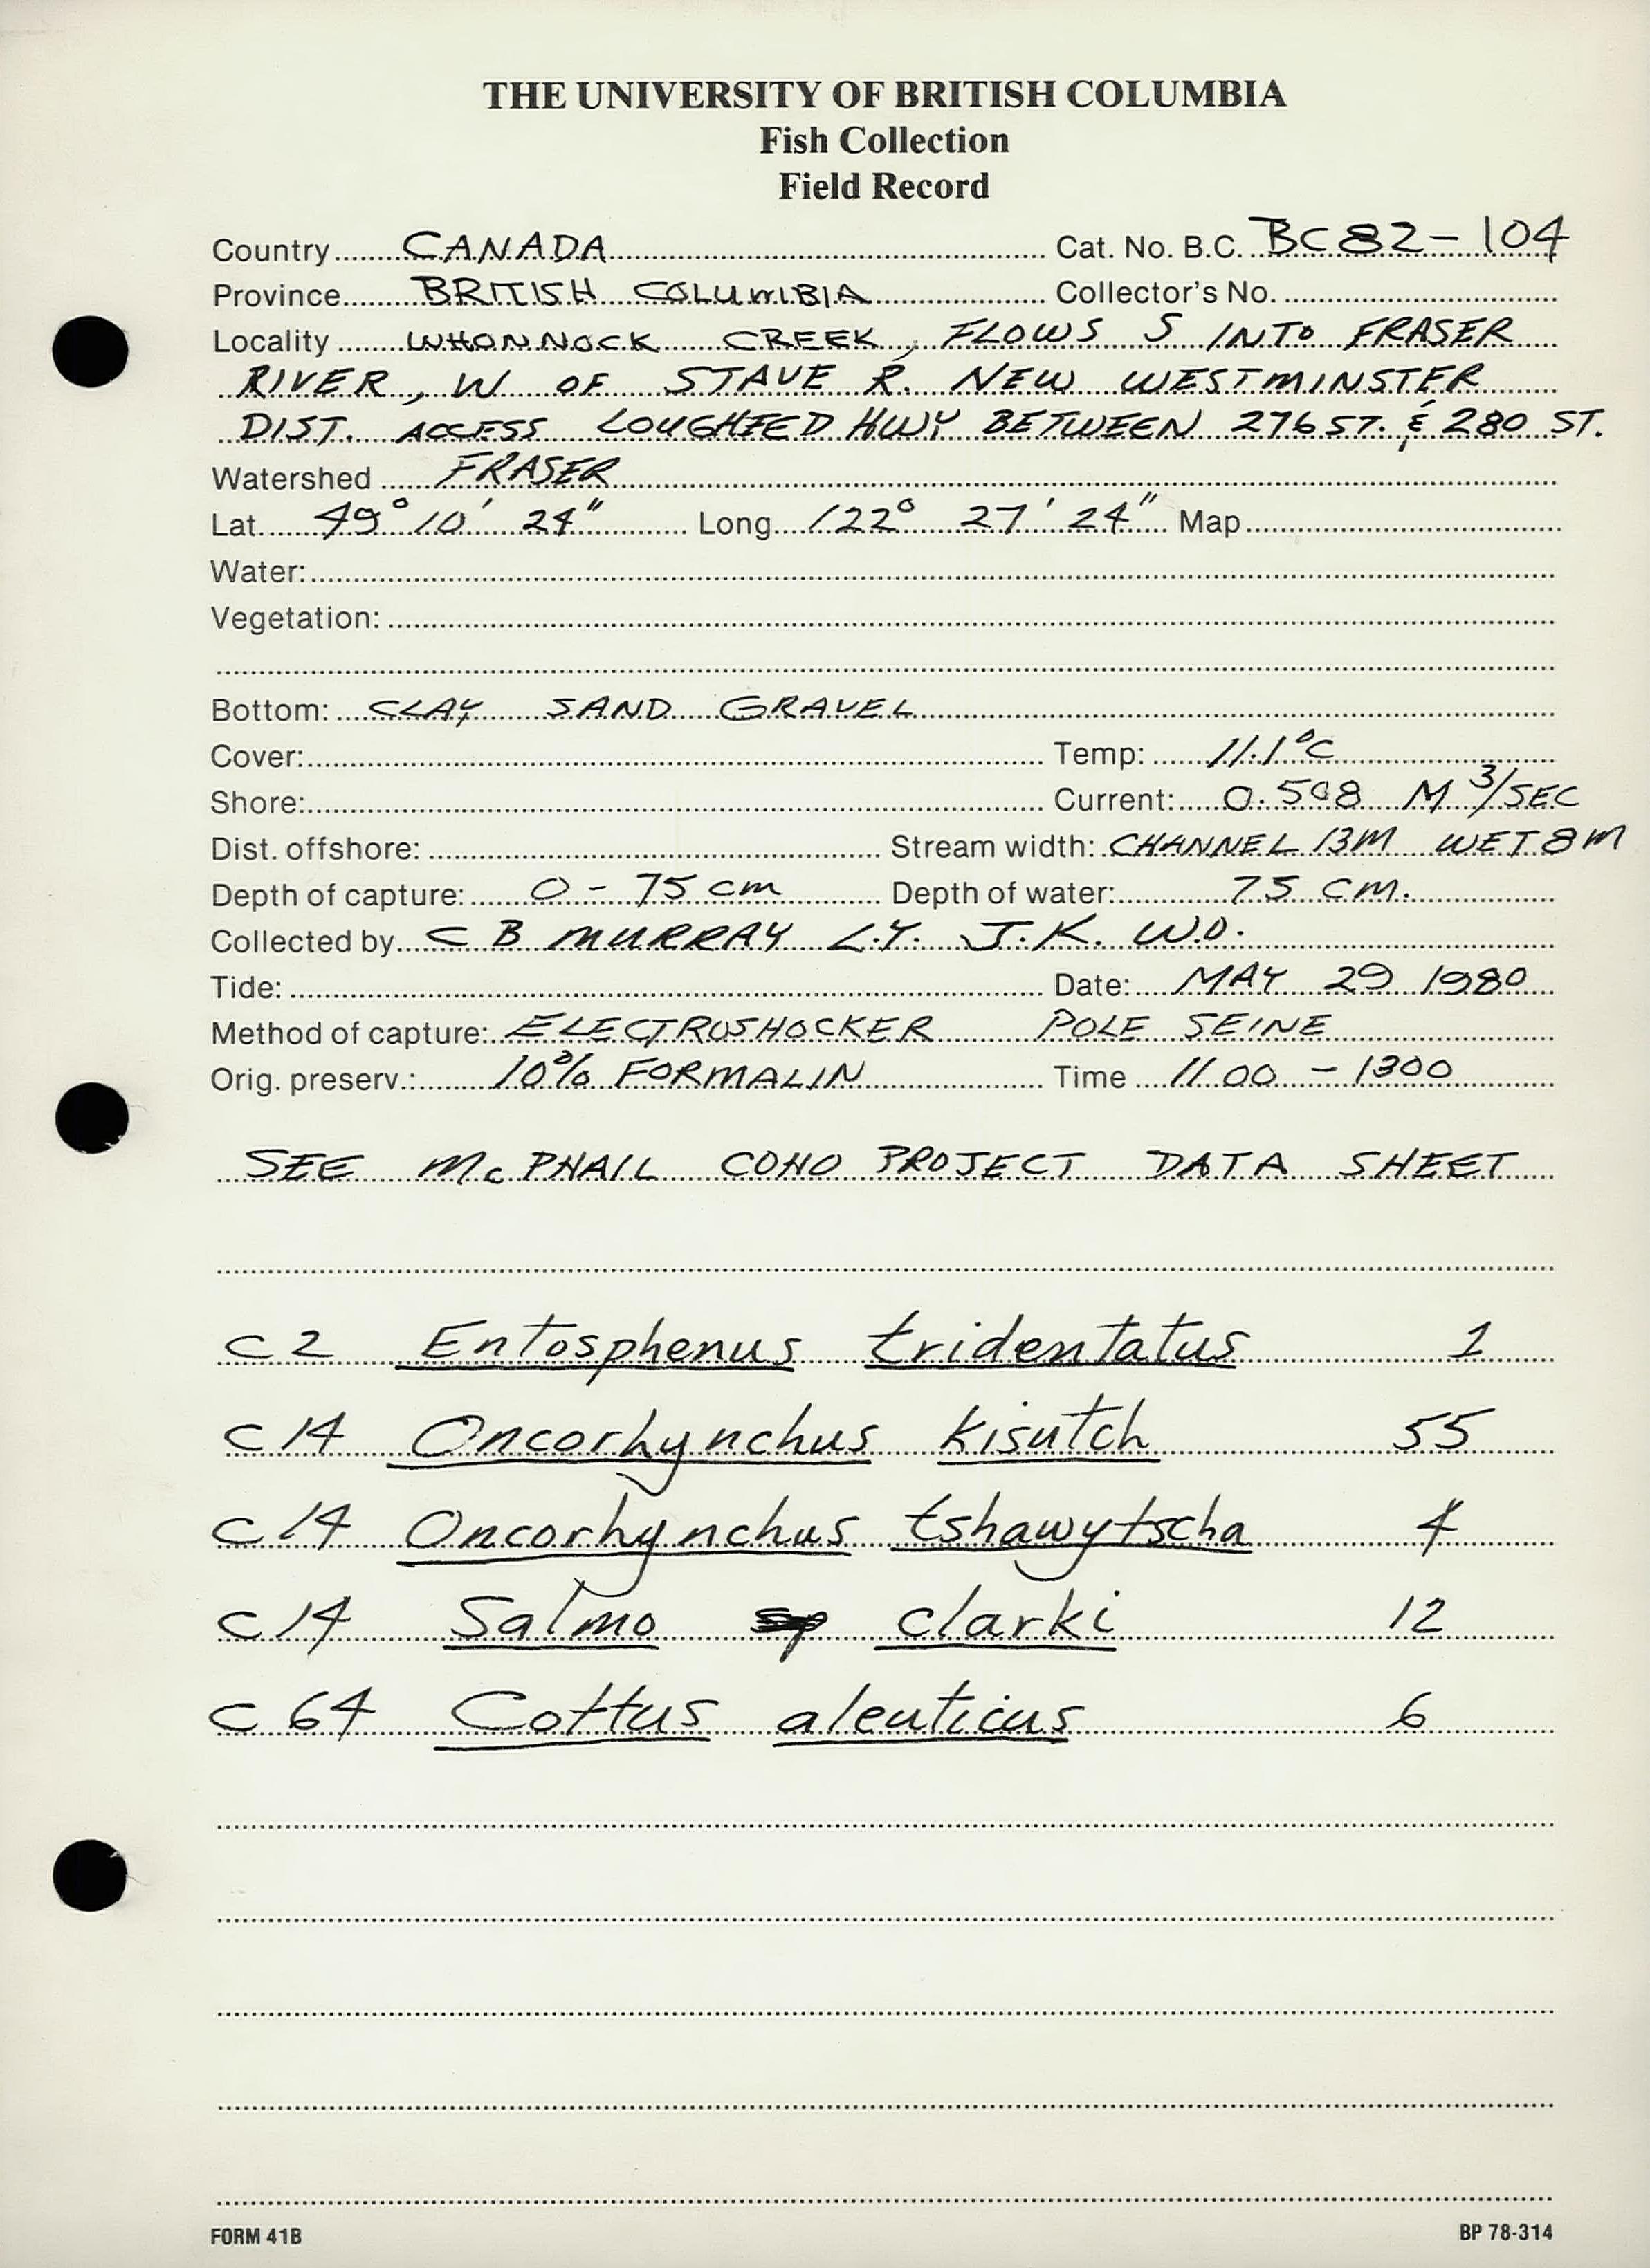 THE UNIVERSITY OF BRITISH COLUMBIA
Fish Collection
Field Record
Country CANADA Cat. No. B.C. BC82-104
Province BRITISH COLUMBIA Collector's No.
Locality WHONNOCK CREEK, FLOWS S INTO FRASER
RIVER, W OF STAVE R. NEW WESTMINSTER
DIST. ACCESS LOUGHEED HWY BETWEEN 276 ST. & 280 ST.
Watershed FRASER
Lat. 49° 10' 24" Long. 122° 27' 24" Map
Water:
Vegetation:
Bottom: CLAY SAND GRAVEL
Cover: Temp: 11.1°C
Shore: Current: 0.508 M3/SEC
Dist. offshore: Stream width: CHANNEL 13M WET 8M
Depth of capture: 0-75 cm Depth of water: 75 CM.
Collected by C B MURRAY L.Y. J.K. W.D.
Tide: Date: MAY 29 1980
Method of capture: ELECTROSHOCKER POLE SEINE
Orig. preserv.: 10% FORMALIN Time 1100 - 1300
SEE McPHAIL COHO PROJECT DATA SHEET
C 2 Entosphenus tridentatus 1
C 14 Oncorhynchus kisutch 55
C 14 Oncorhynchus tshawytscha 4
C 14 Salmo sp clarki 12
C 64 Cottus aleuticus 6
FORM 41B BP 78-314